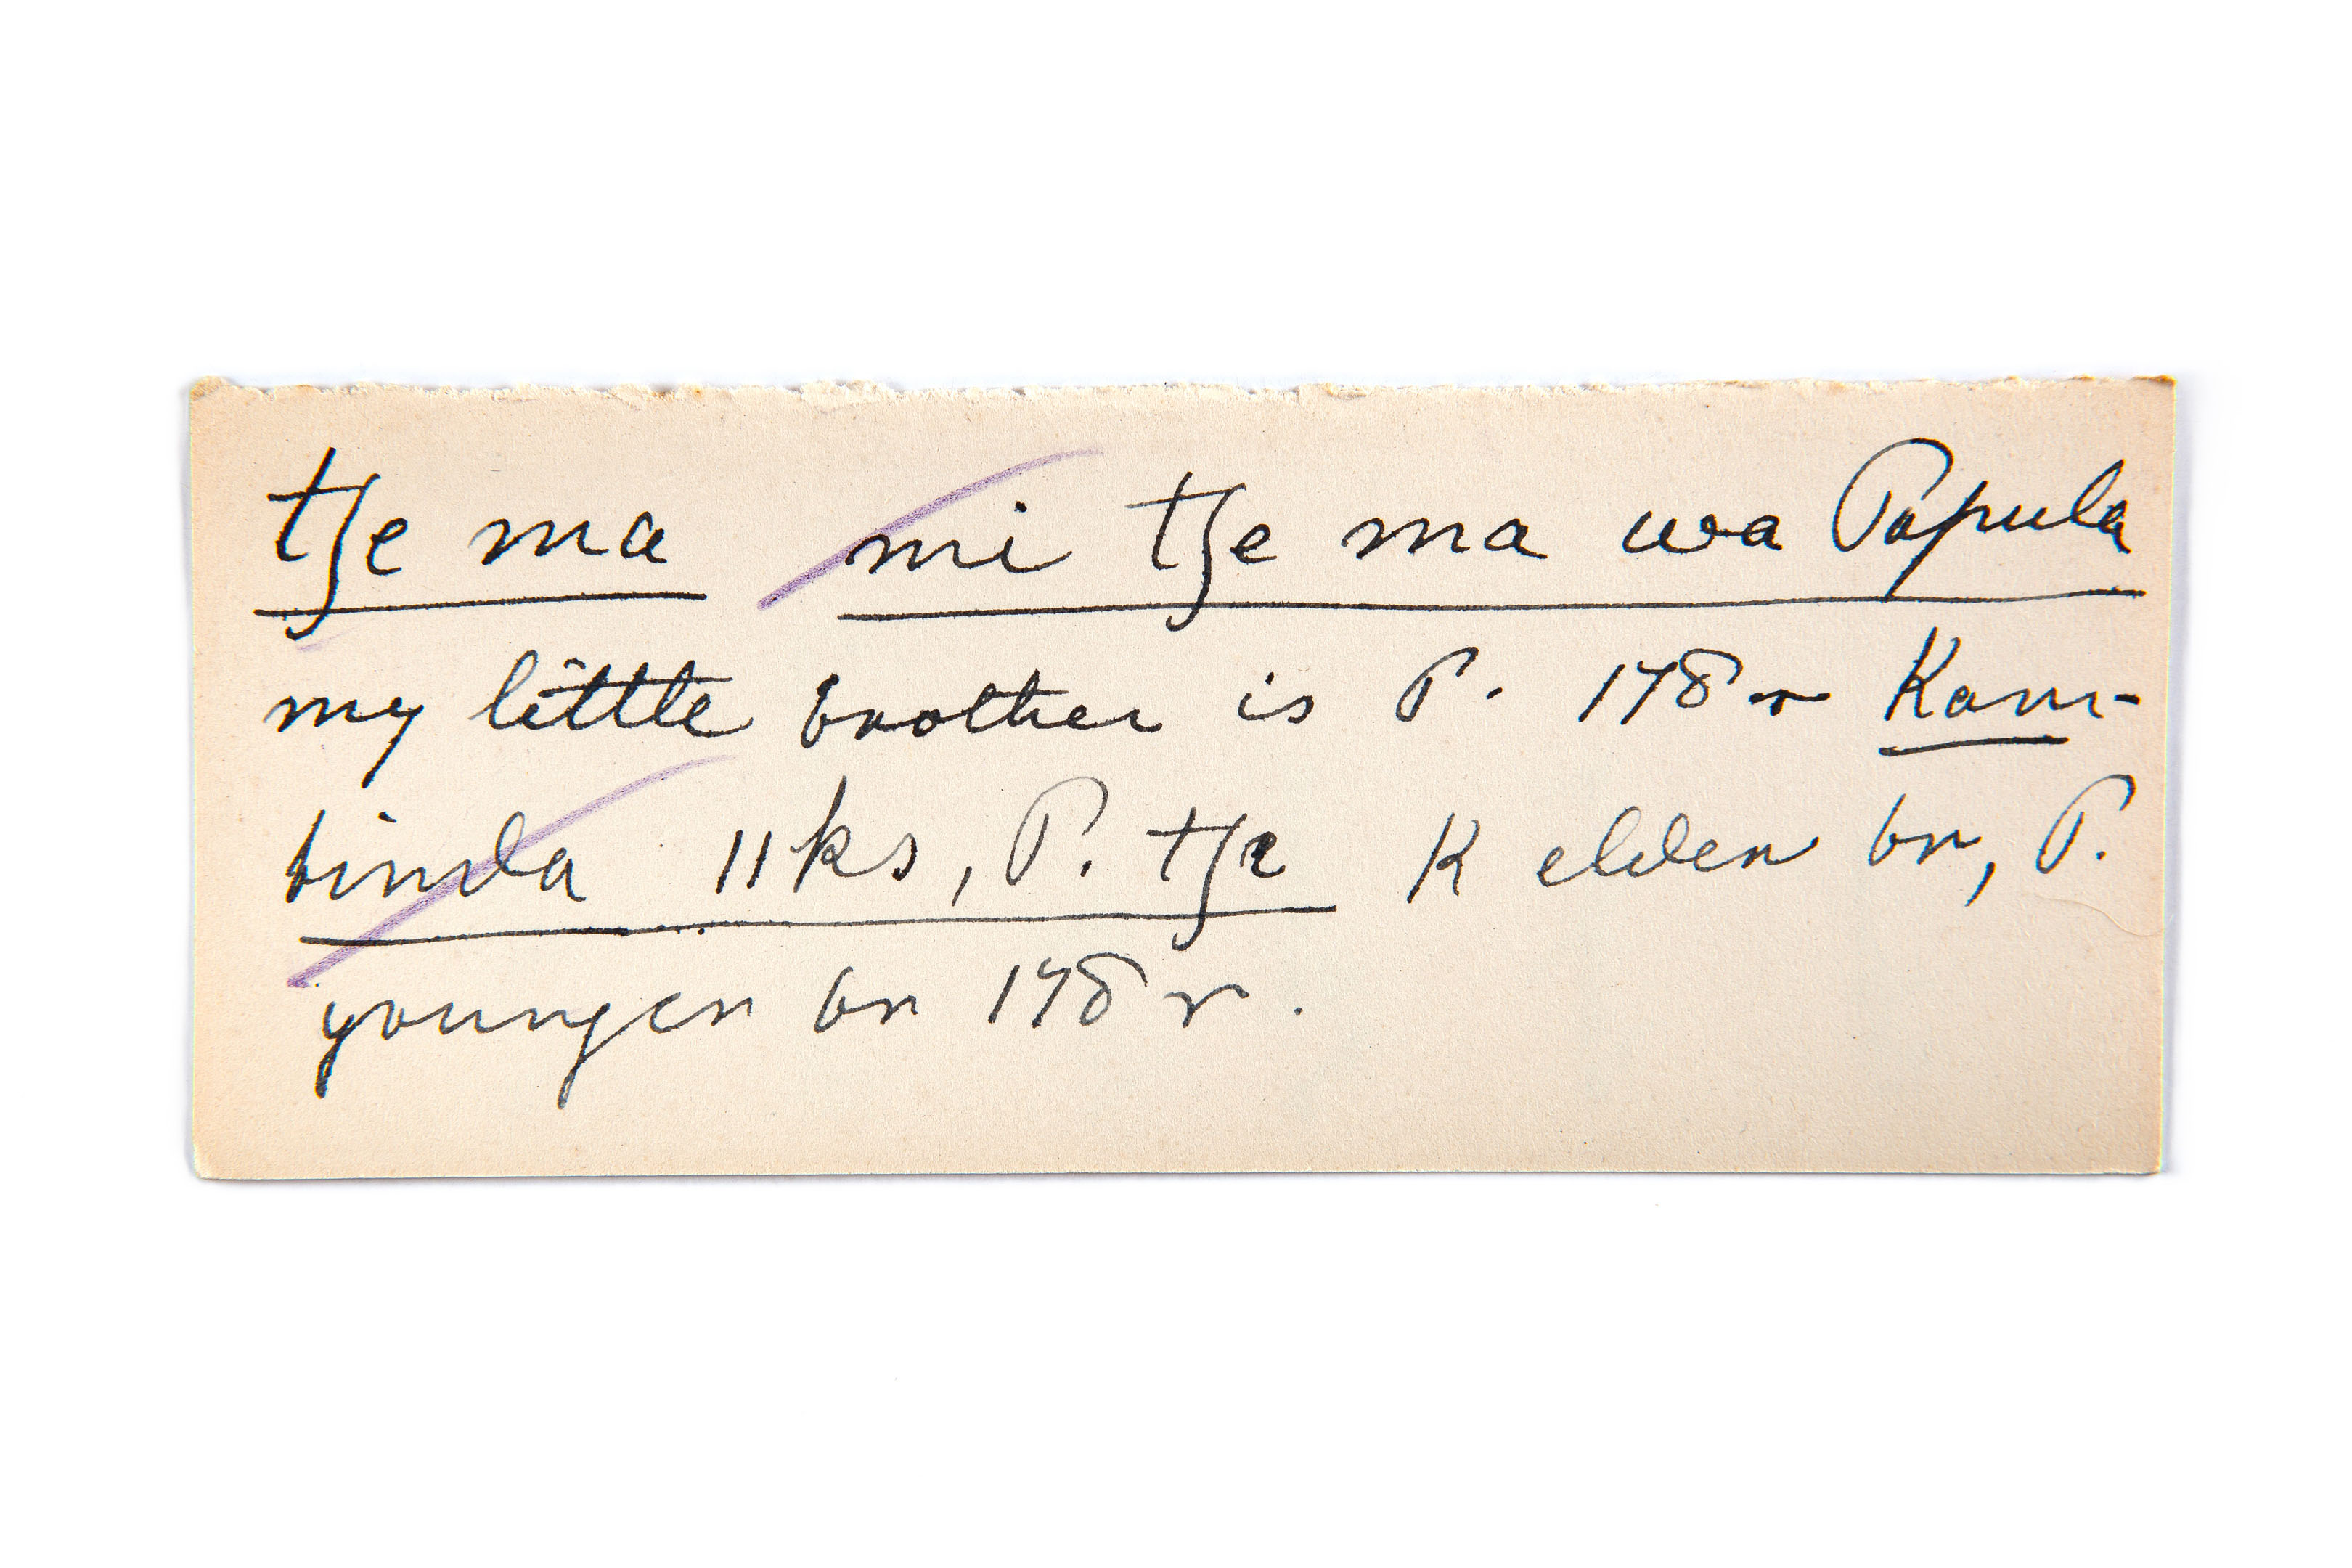 tʃe ma mi tʃe ma wa Papula
my little brother is P. 178r Kam-
binda ||ks, P. tʃe K elder br, P.
younger br 178r.